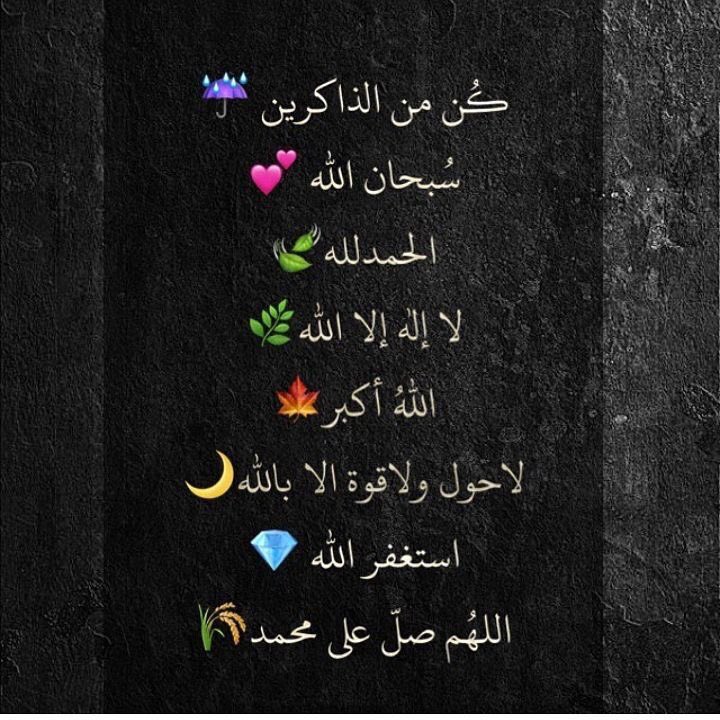 كُن من الذاكرين ☔
سُبحان الله 💕
الحمدلله 🍃
لا إله إلا الله 🌿
اللهُ أكبر 🍁
لاحول ولاقوة الا بالله 🌙
استغفر الله 💎
اللهُم صلّ على محمد 🌾